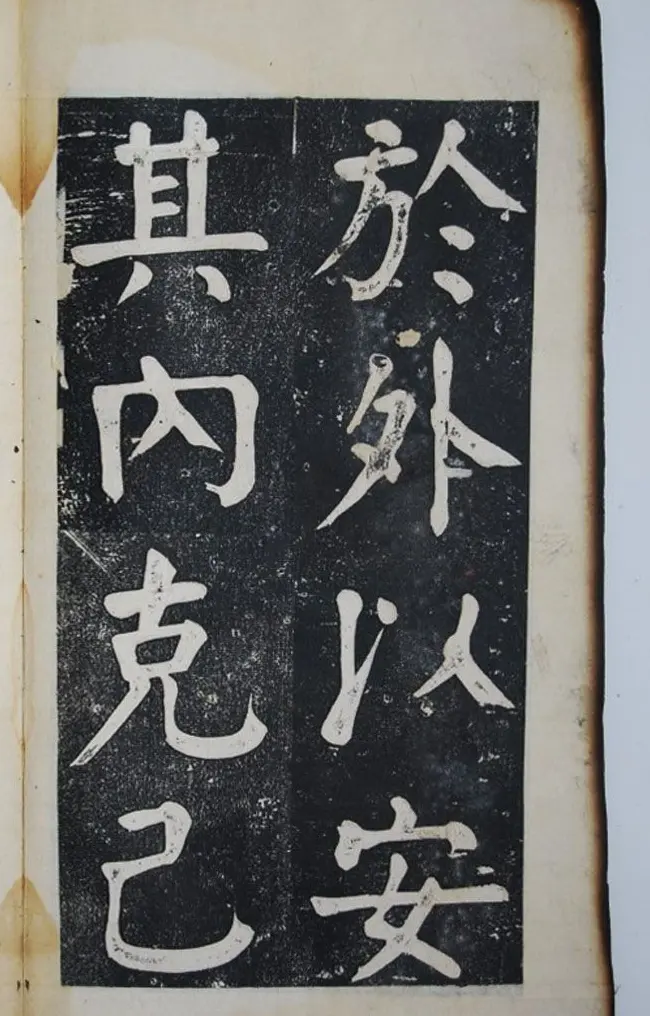 於外以安
其內克己